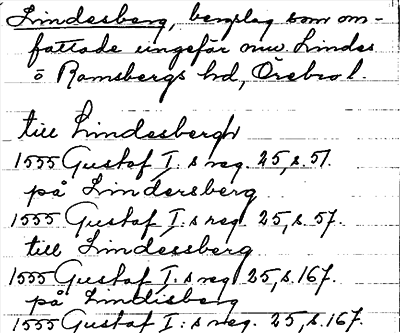 Lindesberg, bergslag som om-
fattade ungefär nuv. Lindes
o Ramsbergs hd, Örebro l.
till Lindesbergh
1555 Gustaf I:s reg. 25, s. 51.
på Lindersberg
1555 Gustaf I:s reg. 25, s. 57.
till Lindessberg
1555 Gustaf I:s reg 25, s. 167.
på Lindisberg
1555 Gustaf I:s reg. 25, s. 167.